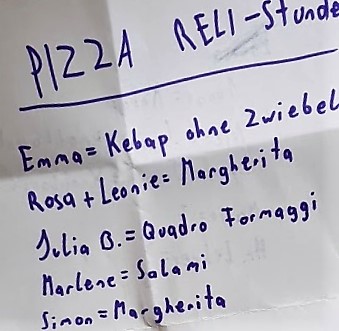 PIZZA RELI-Stunde
Emma = Kebap ohne Zwiebel
Rosa + Leonie = Margherita
Julia B. = Quadro Formaggi
Marlene = Salami
Simon = Margherita